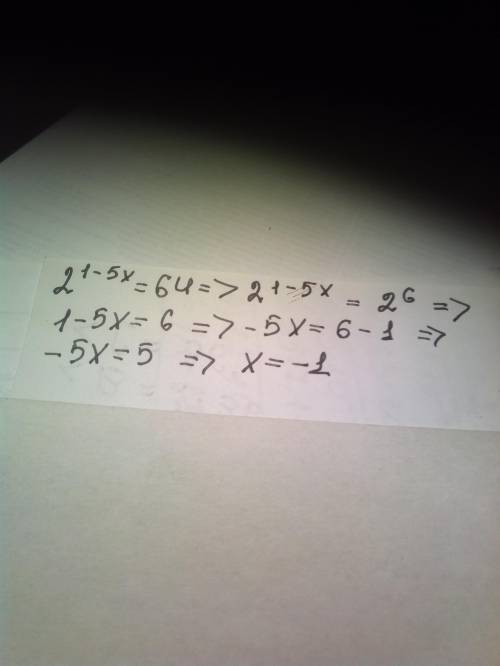 2^{1-5x} = 64 => 2^{1-5x} = 2^6 =>
1-5x = 6 => -5x = 6-1 =>
-5x = 5 => x = -1